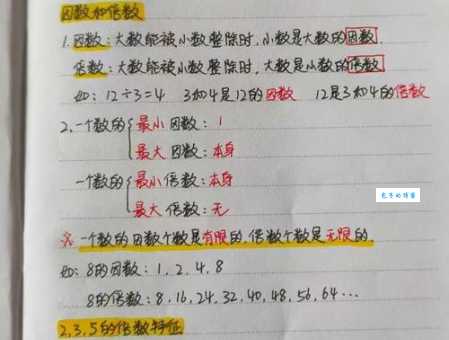 因数和倍数
1.因数：大数能被小数整除时，小数是大数的因数.
倍数：大数能被小数整除时，大数是小数的倍数
如：12÷3=4 3和4是12的因数 12是3和4的倍数
2.一个数的{最小因数：1
最大因数：本身
一个数的{最小倍数：本身
最大倍数：无
※一个数的因数个数是有限的，倍数个数是无限的.
如：8的因数：1，2，4，8
8的倍数：8，16，24，32，40，48，56，64…
2,3,5的倍数特征